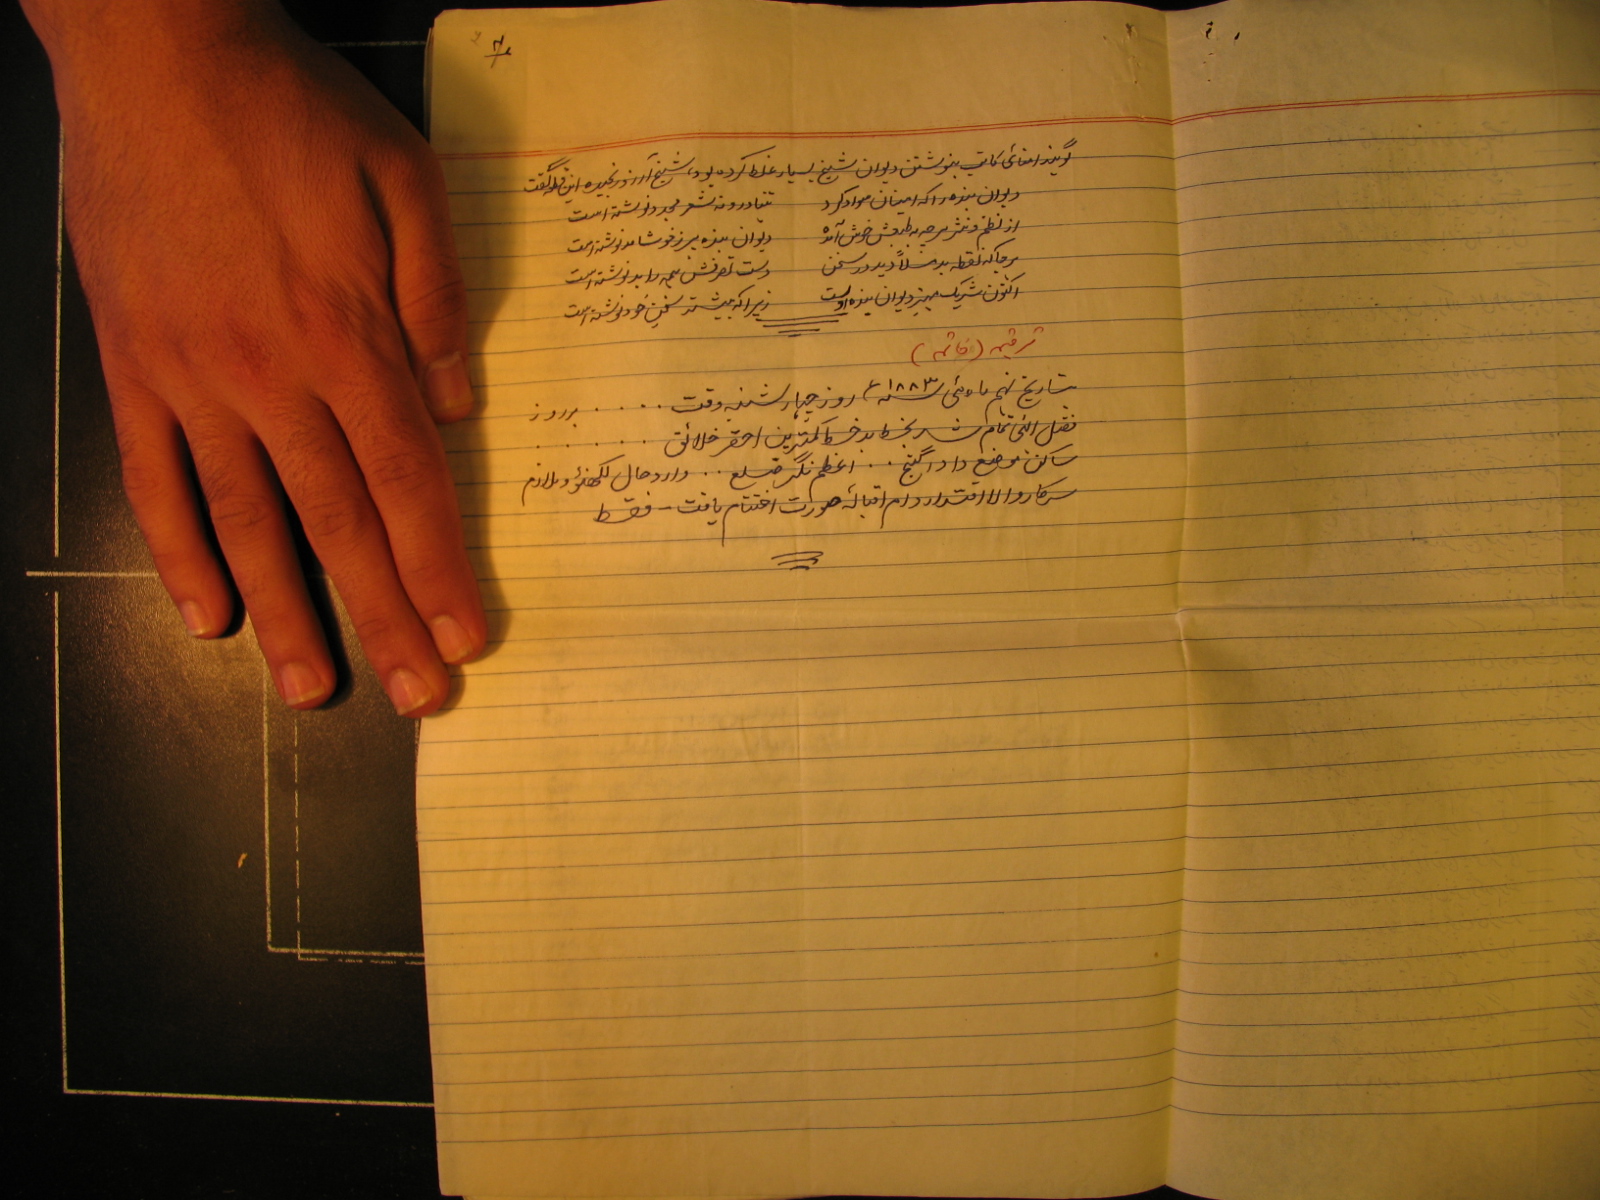 گویند امنائی کاتب بنوشتن دیوان شیخ بسیار غلط کرده بود، شیخ آزرده رنجیده این قطعه گفت
دیوان بنده را که امینان سواد کرد تنها درو نه شعر مجدد نوشته است
از نظم و نثر هرچه به طبعش خوش آمده دیوان بنده پر ز خوشامد نوشته است
هرجا که نقطه بد مثلاً دید در سخن دست تصرفش همه را بد نوشته است
اکنون شریک بهتر دیوان بنده اوست زیرا که بیشتر سخن خود نوشته است
ترقیمه (خاتمه)
بتاریخ نهم ماه مئی ۱۸۸۳ء روز چہار شنبه وقت . . . . بروز
فضل الٰہی تمام شد بخط بدخط کمترین احقر خلائق . . . . . .
ساکن موضع داودگنج . . اعظم نگر ضلع . . . وارد حال لکھنؤ و ملازم
سرکار والا اقتدار دام اقبالهٗ صورت اختتام یافت – فقط